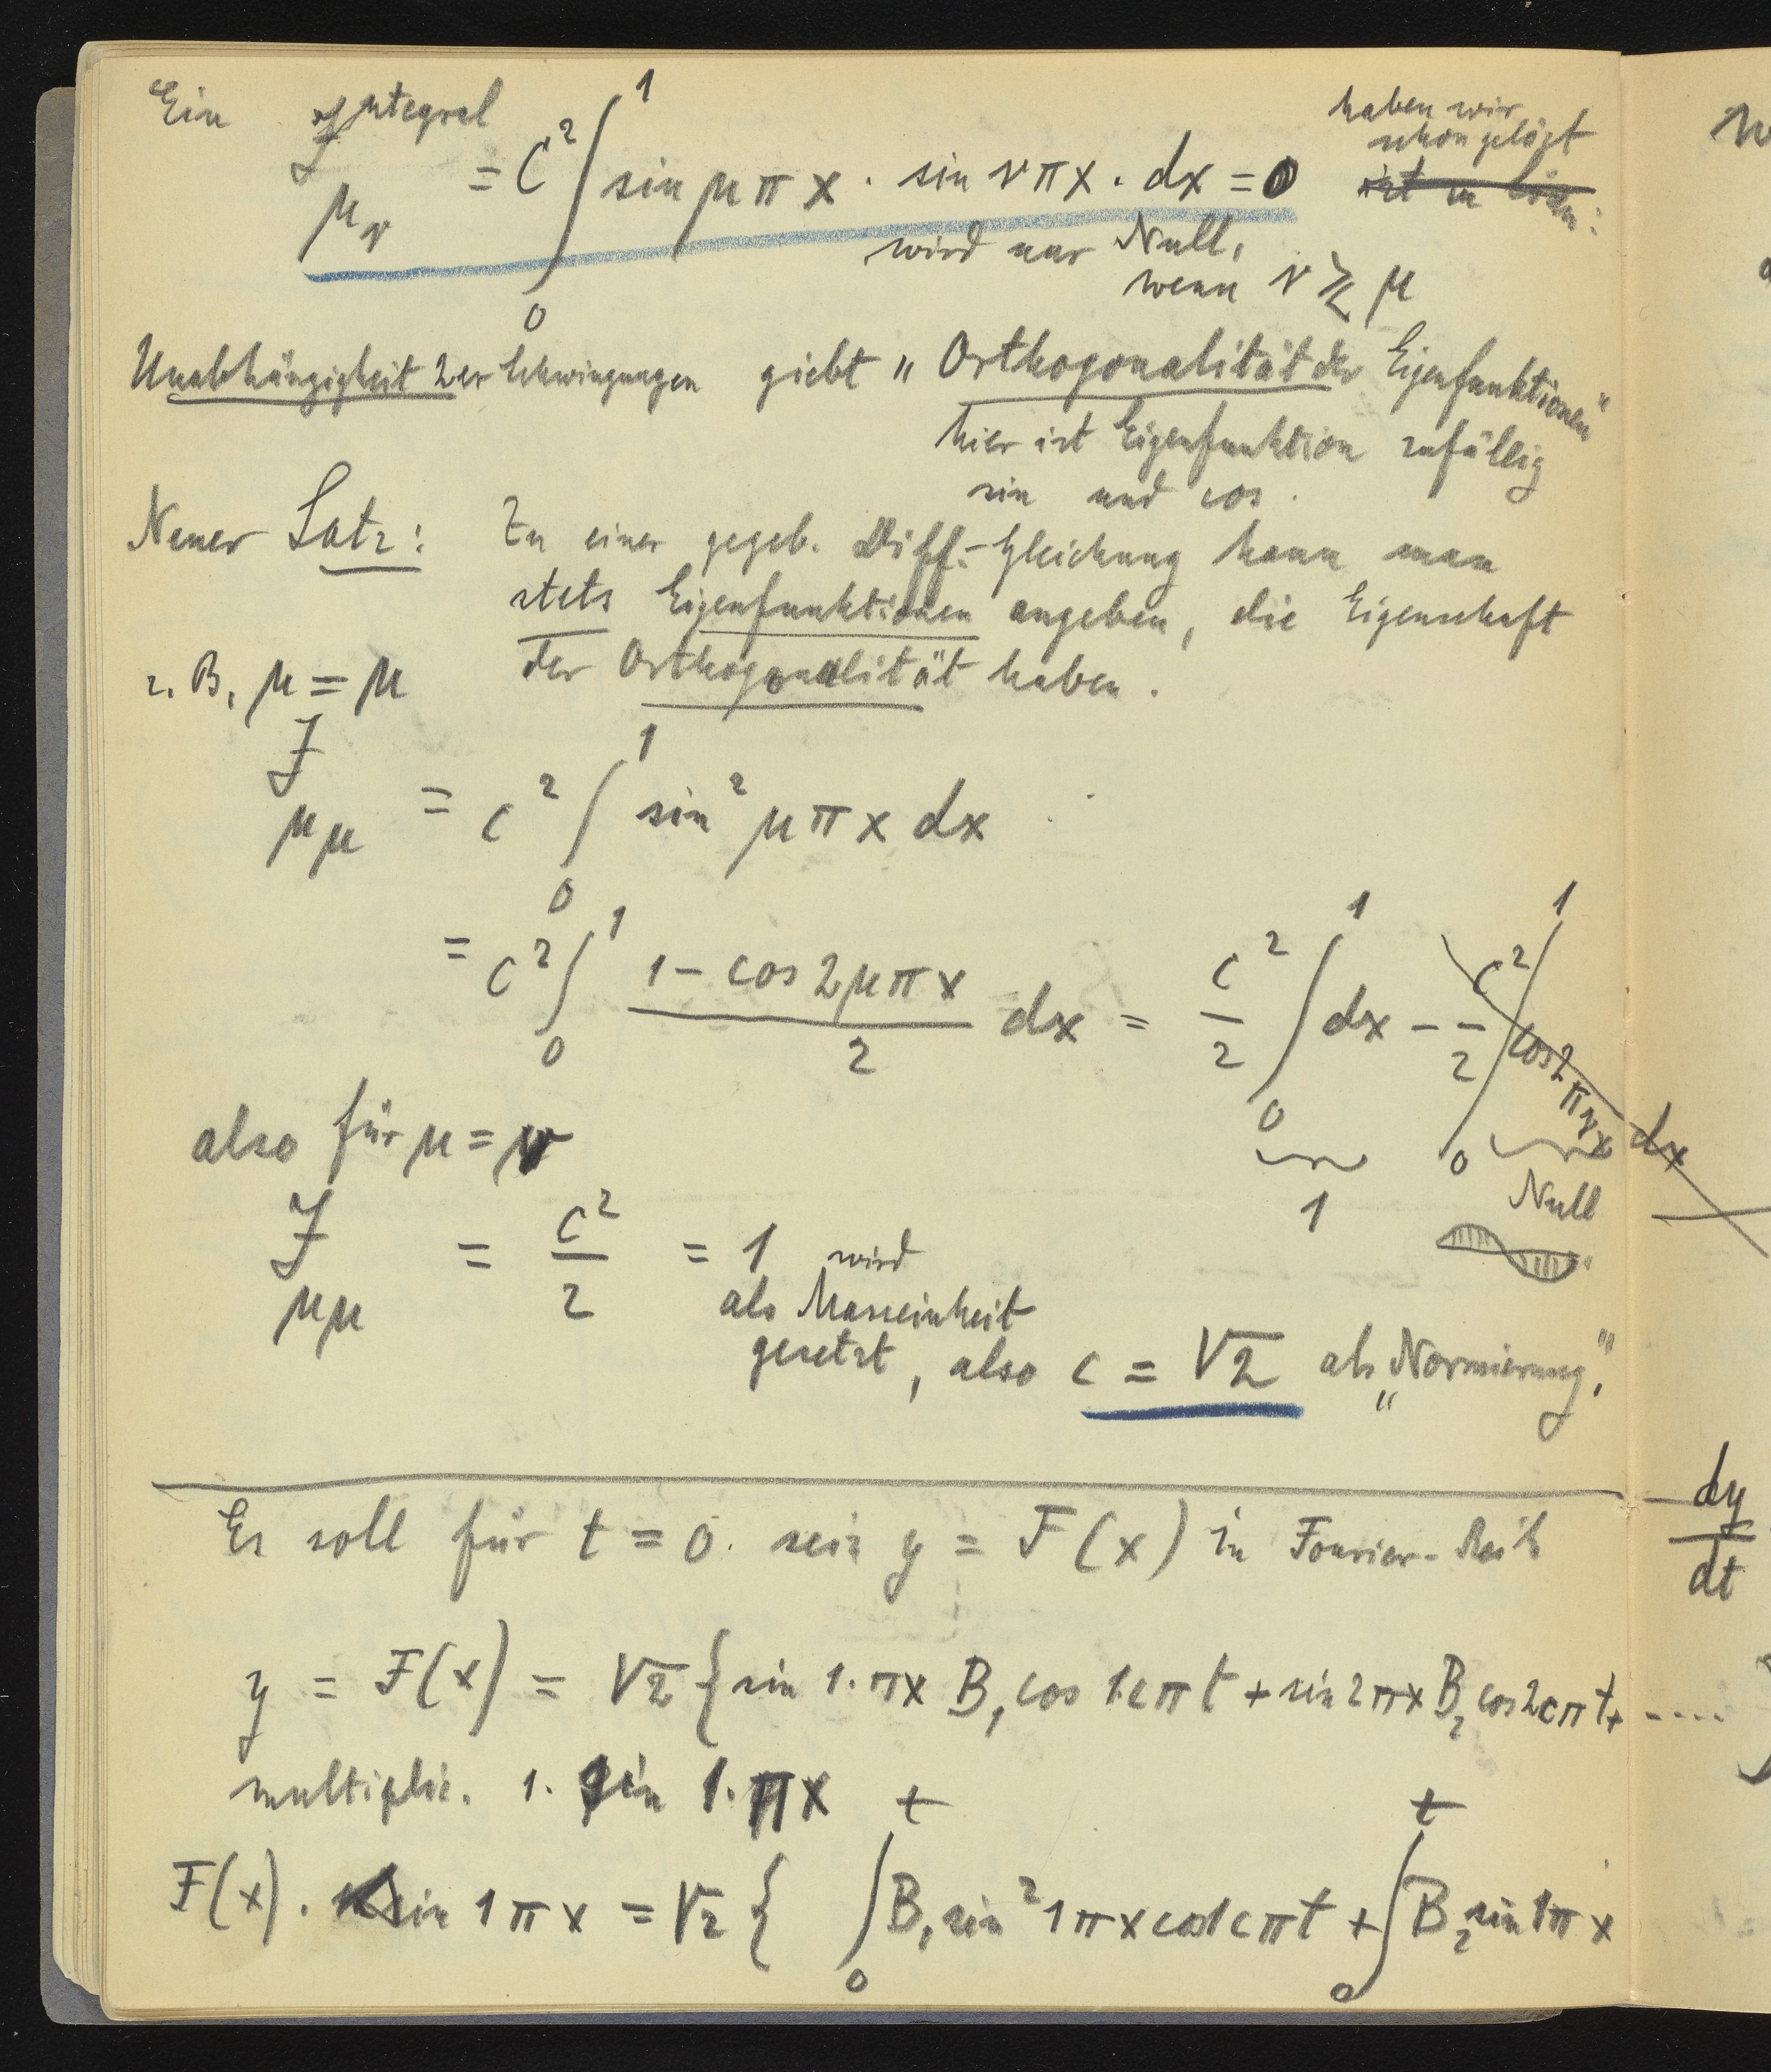 Ein Integral
J μν = C² ∫₀¹ sin μπx · sin νπx · dx = 0 haben wir schon gelöst
wird nur Null,
wenn ν ≷ μ
Unabhängigkeit der Schwingungen giebt „Orthogonalität der Eigenfunktionen"
hier ist Eigenfunktion zufällig
sin und cos.
Neuer Satz: Zu einer gegeb. Diff.-Gleichung kann man
stets Eigenfunktionen angeben, die Eigenschaft
der Orthogonalität haben.
z. B. μ = μ
J μμ = c² ∫₀¹ sin² μπx dx
= c² ∫₀¹ (1 - cos 2μπx)/2 dx = c²/2 ∫₀¹ dx - c²/2 ∫₀¹ cos 2πνx dx
1 Null
also für μ = ν
J μμ = c²/2 = 1 wird
als Masseinheit
gesetzt, also c = √2 als „Normierung".
Es soll für t = 0 sein y = F(x) in Fourier-Reihe
y = F(x) = √2 { sin 1·πx B₁ cos 1cπt + sin 2πx B₂ cos 2cπt + ....
multiplic. 1. sin 1·πx
F(x) · sin 1πx = √2 { ∫₀ᵗ B₁ sin² 1πx cos 1cπt + ∫₀ᵗ B₂ sin 1πx
dy/dt